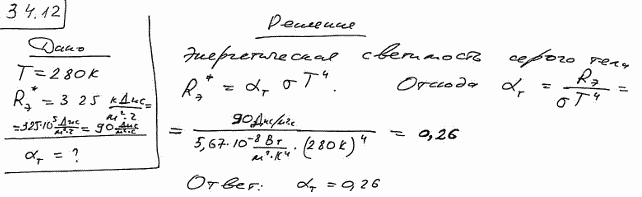 34.12
Дано
T = 280 K
Rэ* = 325 кДж/м²·ч =
= 325·10⁵ Дж/м²·ч = 90 Дж/м²·с
αт = ?
Решение
Энергетическая светимость серого тела
Rэ* = αт σ T⁴. Отсюда αт = Rэ/σT⁴ =
= 90 Дж/м²с / 5,67·10⁻⁸ Вт/м²·К⁴ · (280К)⁴ = 0,26
Ответ: αт = 0,26